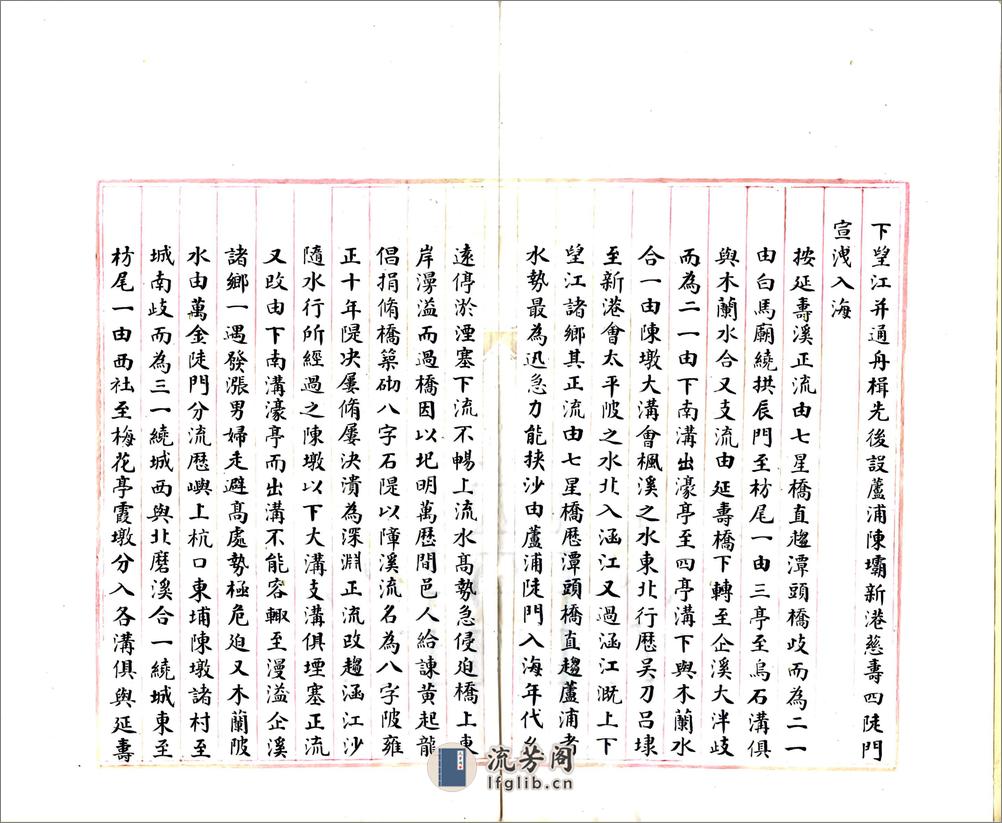 下望江并通舟楫先後設蘆浦陳壩新港慈壽四陡門
宣洩入海
按延壽溪正流由七星橋直趨潭頭橋歧而為二一
由白馬廟繞拱辰門至枋尾一由三亭至烏石溝俱
與木蘭水合又支流由延壽橋下轉至企溪大泮歧
而為二一由下南溝出濠亭至四亭溝下與木蘭水
合一由陳墩大溝會楓溪之水東北行歷吳刀呂埭
至新港會太平陂之水北入涵江又過涵江溉上下
望江諸鄉其正流由七星橋歷潭頭橋直趨蘆浦者
水勢最為迅急力能挾沙由蘆浦陡門入海年代久
遠停淤湮塞下流不暢上流水髙勢急侵迫橋上東
岸漫溢而過橋因以圮明萬歷間邑人給諫黄起龍
倡捐脩橋築砌八字石隄以障溪流名為八字陂雍
正十年隄决屢脩屢決潰為深淵正流改趨涵江沙
隨水行所經過之陳墩以下大溝支溝俱堙塞正流
又改由下南溝濠亭而出溝不能容輙至漫溢企溪
諸鄉一遇發漲男婦走避髙處勢極危迫又木蘭陂
水由萬金陡門分流歷嶼上杭口東埔陳墩諸村至
城南歧而為三一繞城西與北磨溪合一繞城東至
枋尾一由西社至梅花亭霞墩分入各溝俱與延壽
流芳阁
lfglib.cn